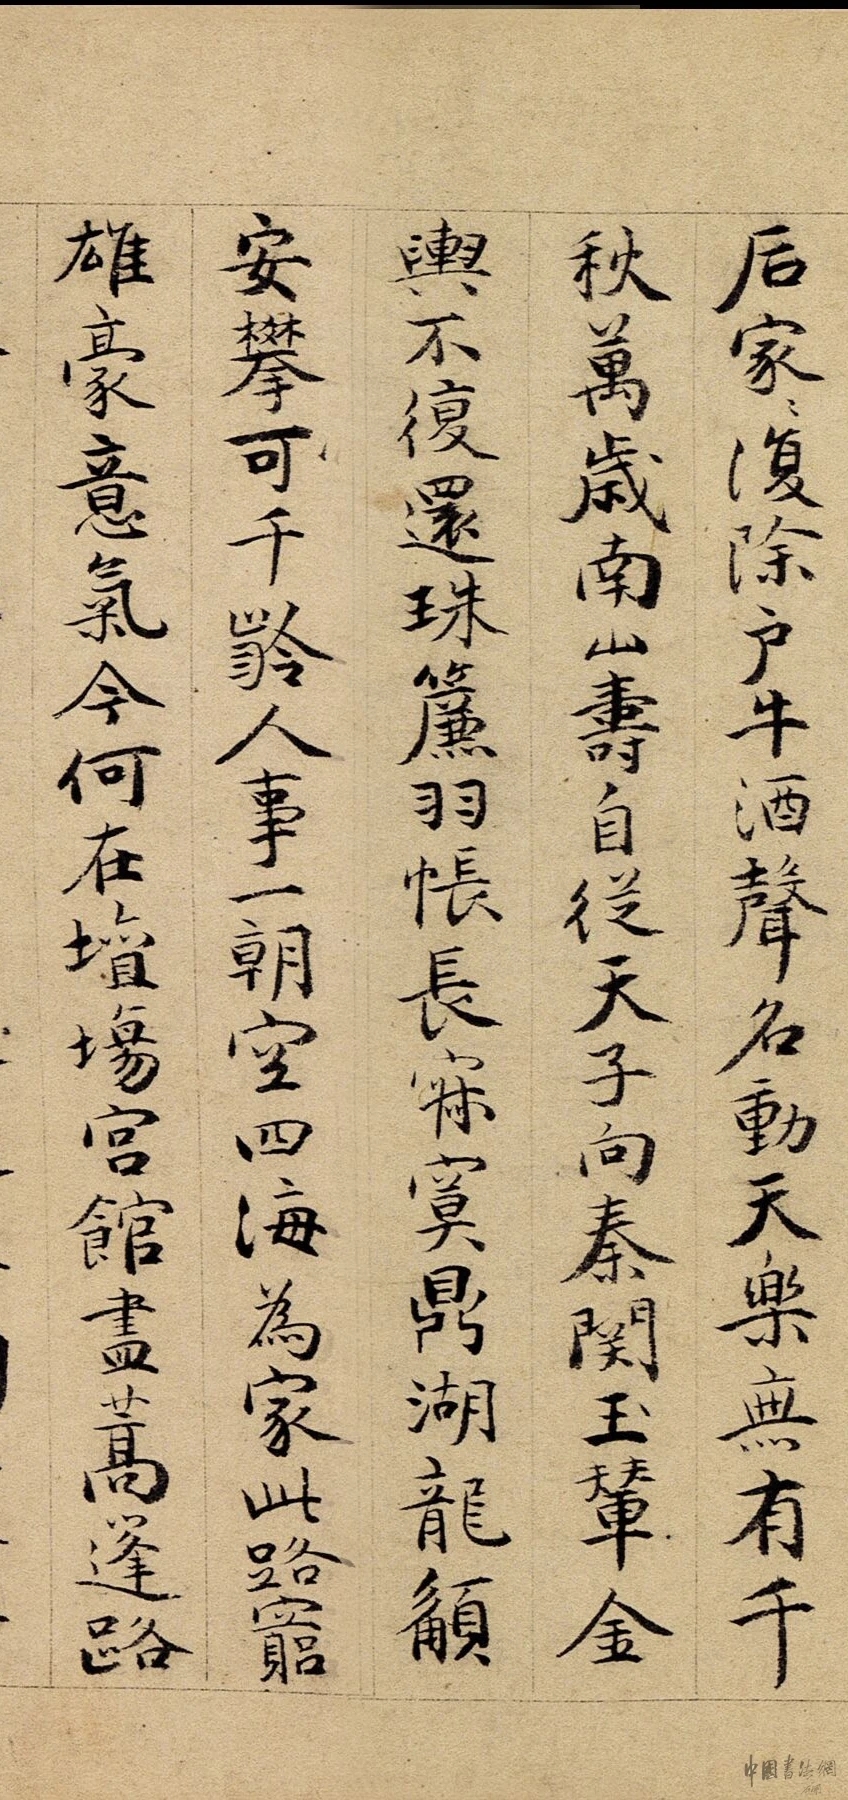 后家〻復除户牛酒聲名動天樂無有千
秋萬歲南山壽自從天子向秦関玉輦金
輿不復還珠簾羽帳長寂寞鼎湖龍
安攀可千齡人事一朝空四海為家此路窮
雄豪意氣今何在壇場宮館盡蒿蓬路
中國書法網